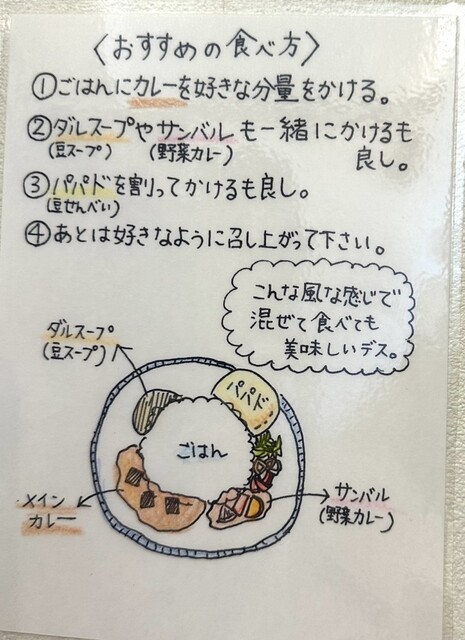 〈おすすめの食べ方〉
①ごはんにカレーを好きな分量をかける。
②ダルスープやサンバルも一緒にかけるも
(豆スープ) (野菜カレー) 良し。
③パパドを割ってかけるも良し。
(豆せんべい)
④あとは好きなように召し上がって下さい。
こんな風な感じで
混ぜて食べても
美味しいデス。
ダルスープ
(豆スープ)
パパド
ごはん
メイン
カレー
サンバル
(野菜カレー)